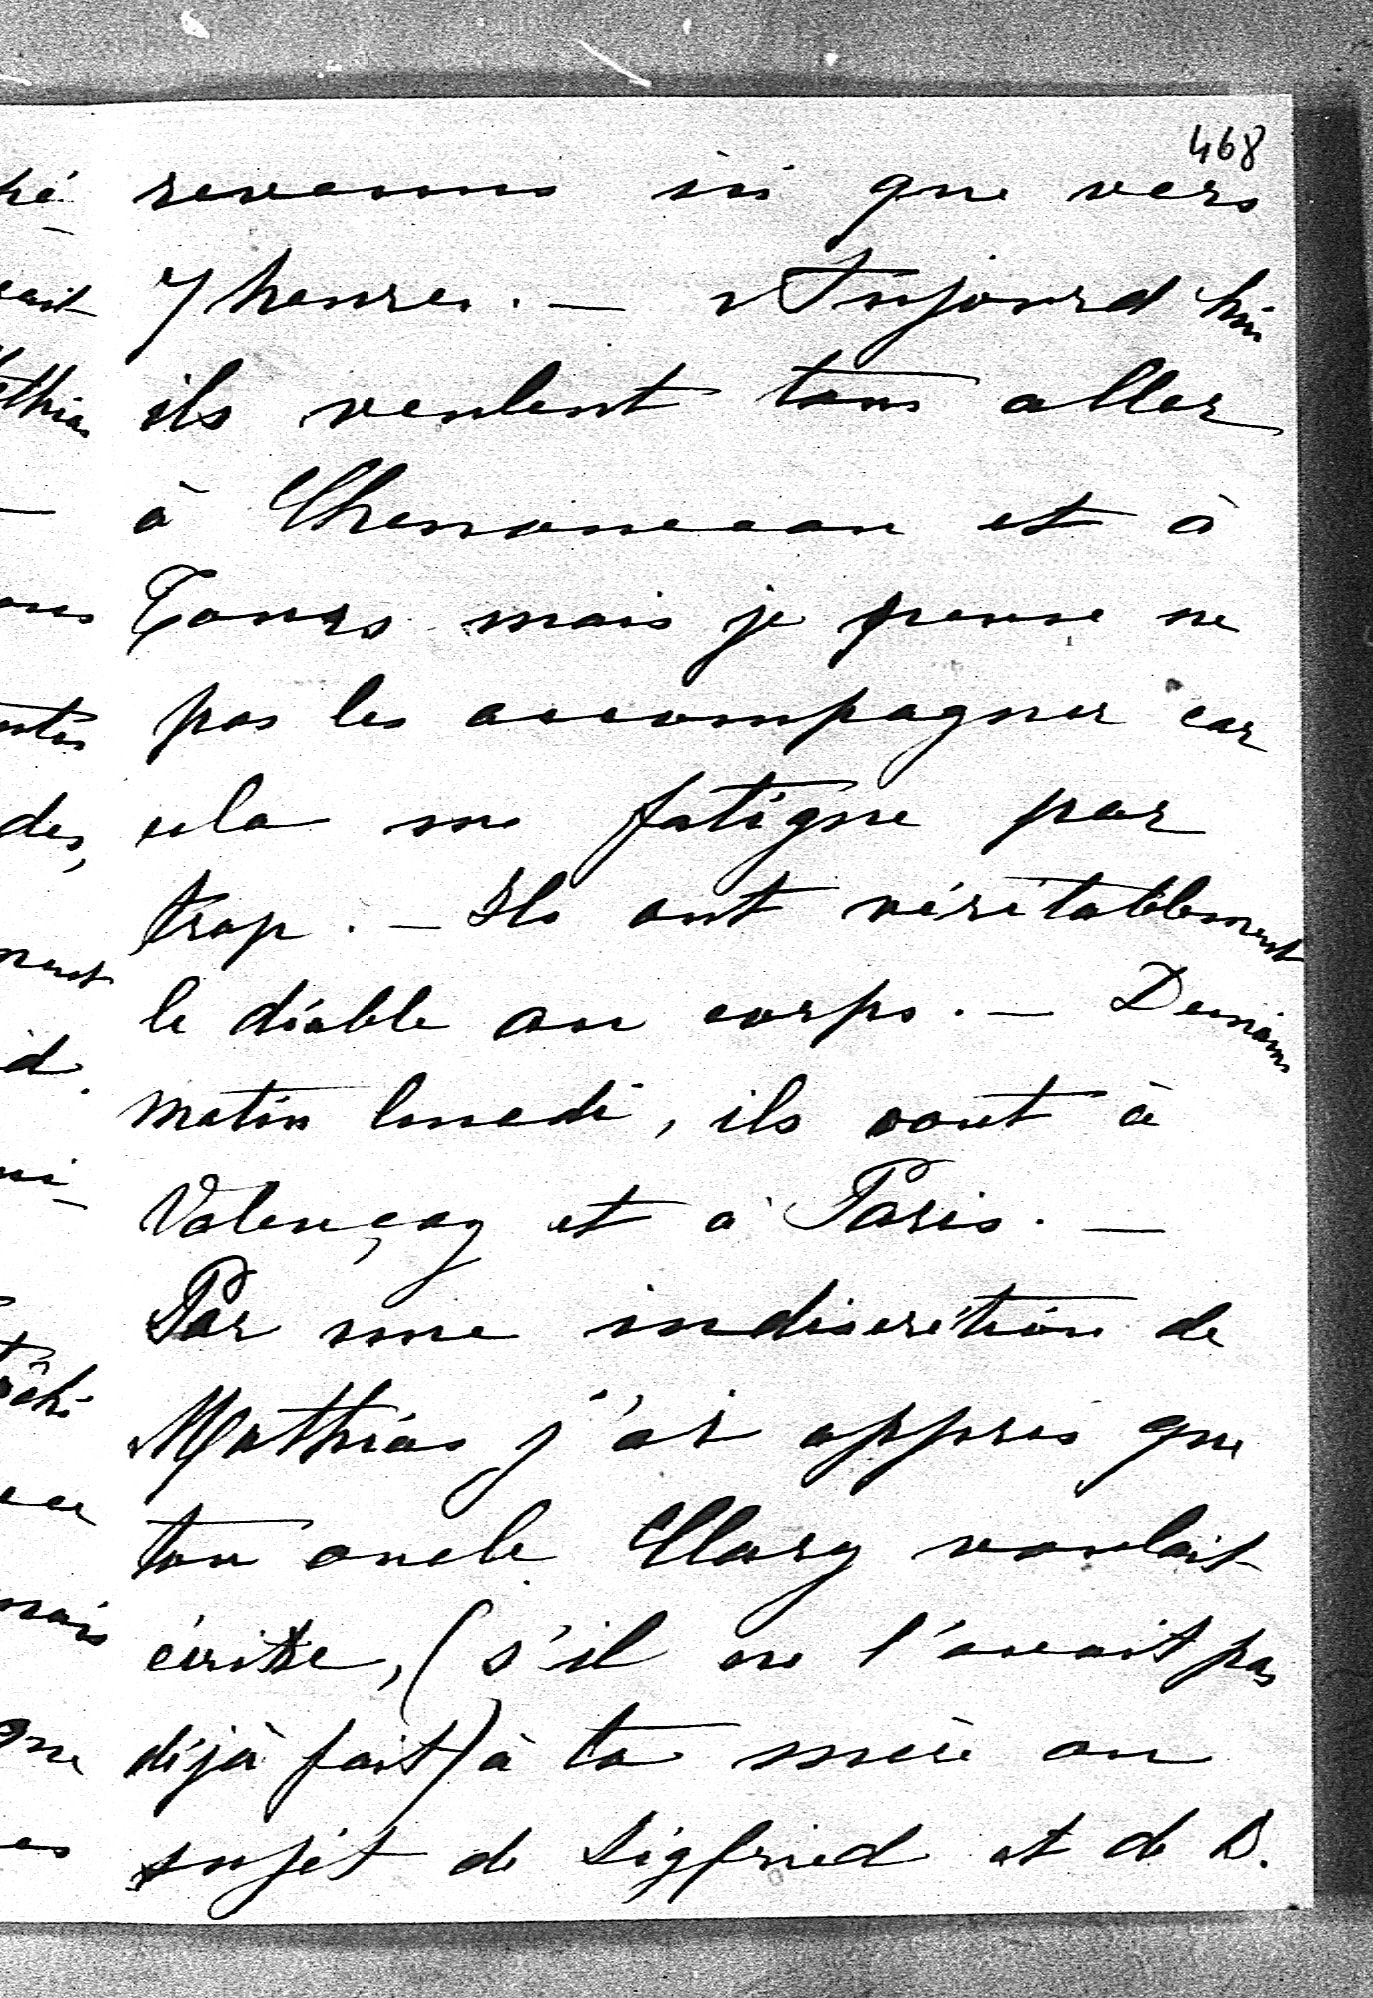 468
revenus ici que vers
7 heures. — Aujourd'hui
ils veulent tous aller
à Chenonceau et à
Tours mais je pense ne
pas les accompagner car
cela me fatigue par
trop. — Ils ont véritablement
le diable au corps. — Demain
matin lundi, ils vont à
Valençay et à Paris. —
Par une indiscrétion de
Mathias j'ai appris que
ton oncle Clary voulait
écrire, (s'il ne l'avait pas
déjà fait) à ta mère au
sujet de Sigfried et de B.